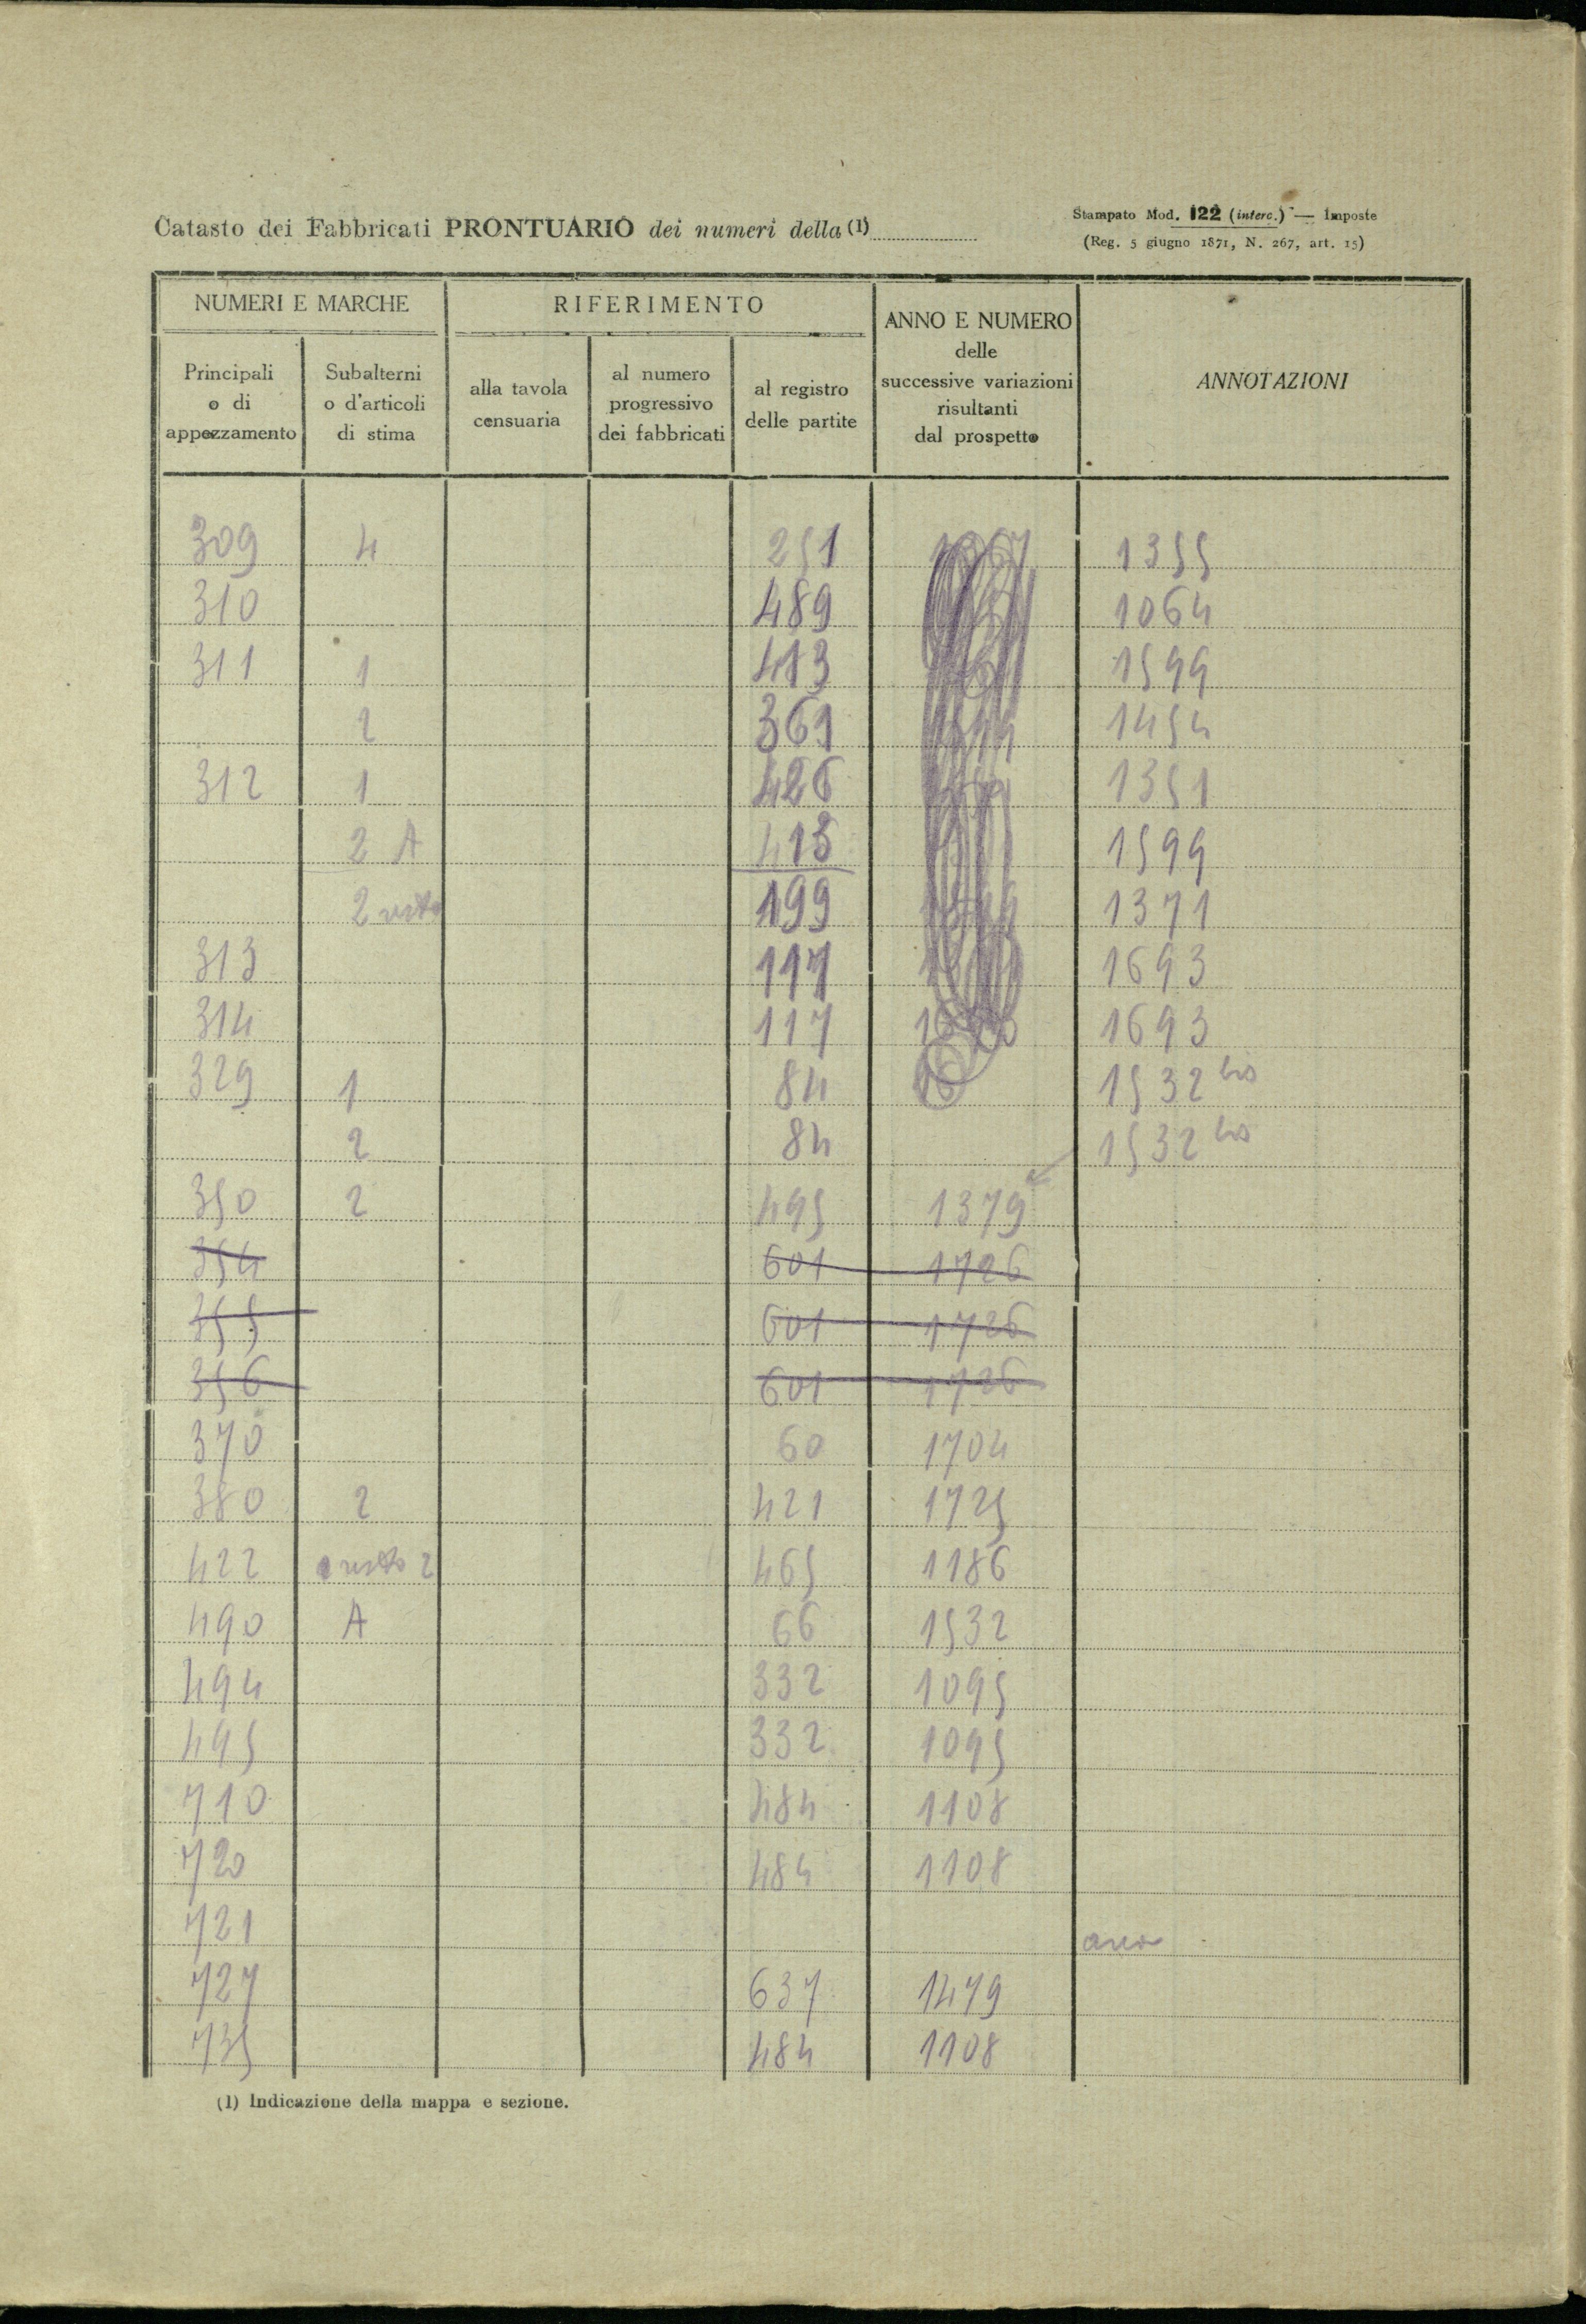 Catasto dei Fabbricati PRONTUARIO dei numeri della (1)
Stampato Mod. 122 (interc.) — Imposte
(Reg. 5 giugno 1871, N. 267, art. 15)
NUMERI E MARCHE
RIFERIMENTO
ANNO E NUMERO delle successive variazioni risultanti dal prospetto
ANNOTAZIONI
Principali o di appezzamento
Subalterni o d'articoli di stima
alla tavola censuaria
al numero progressivo dei fabbricati
al registro delle partite
309 4 251 1355
310 489 1064
311 1 413 1599
2 361 1454
312 1 426 1351
2 A 413 1599
2 resto 199 1371
313 117 1693
314 117 1693
329 1 84 1532 bis
2 84 1532 bis
350 2 495 1379
354 601 1726
355 601 1726
356 601 1726
370 60 1704
380 2 421 1725
422 resto 2 465 1186
490 A 66 1532
494 332 1095
495 332 1095
710 484 1108
720 484 1108
721 area
727 637 1479
735 484 1108
(1) Indicazione della mappa e sezione.